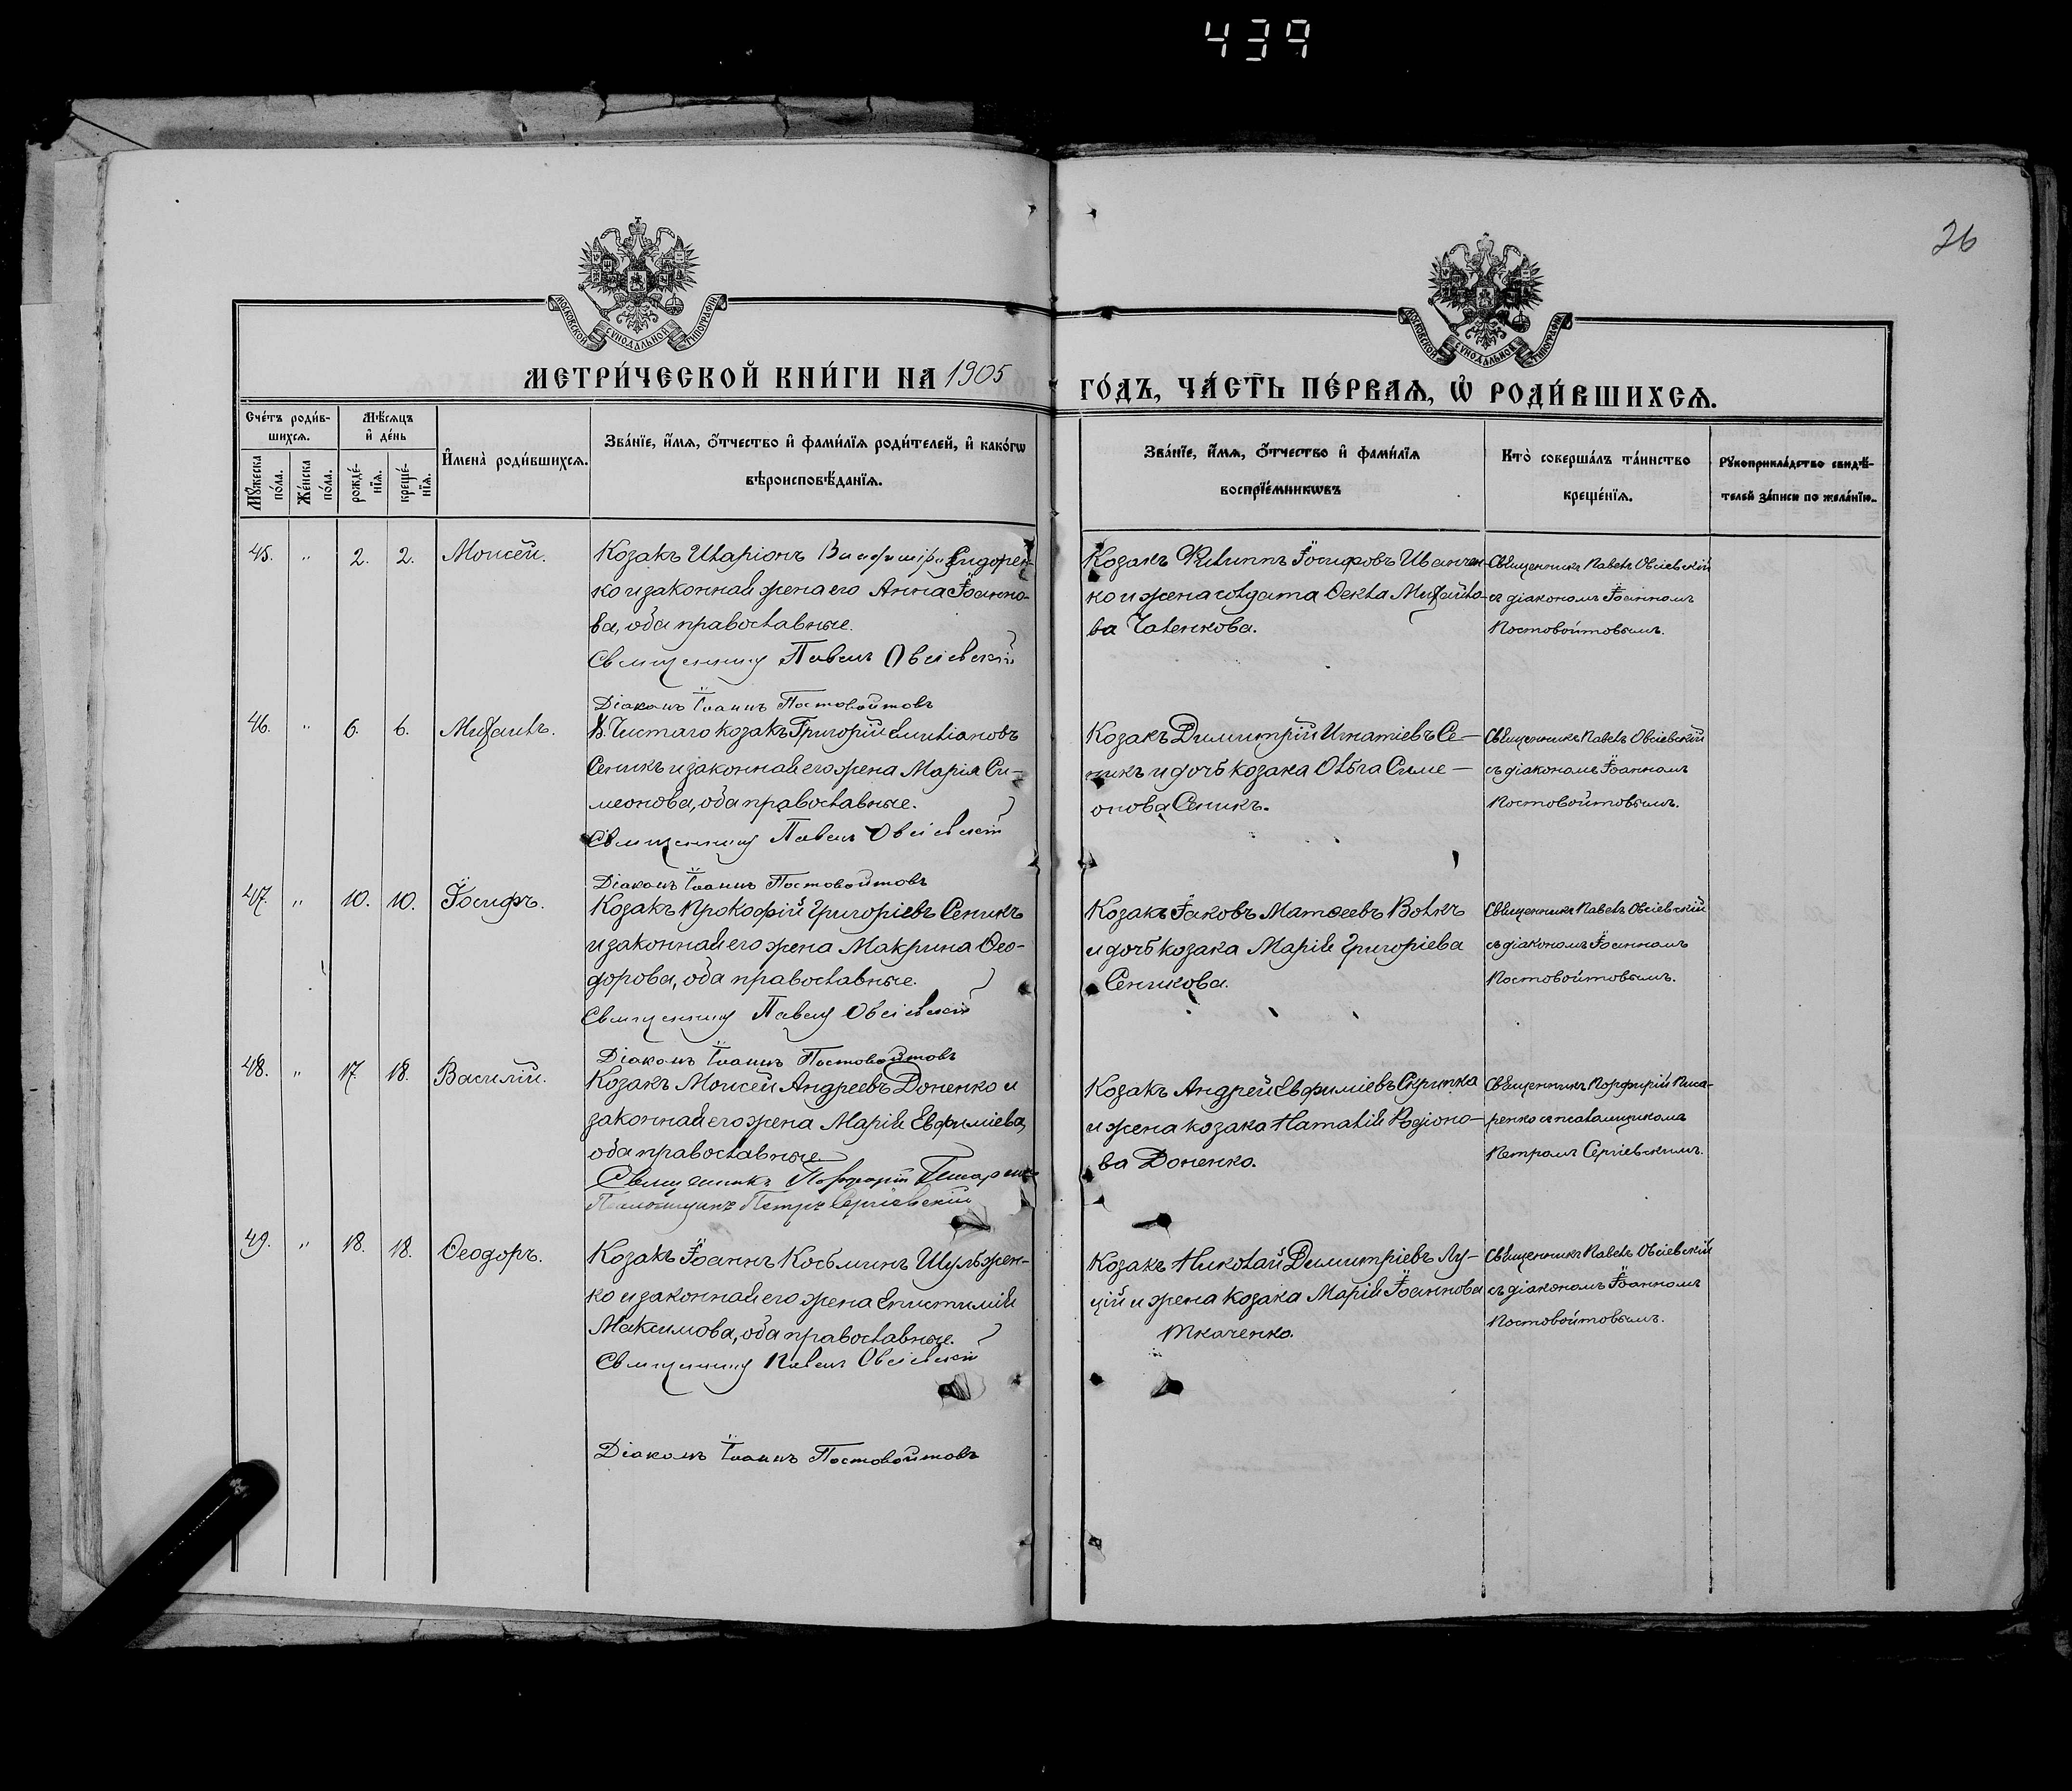 439
26
МОСКОВСКОЙ СѴНОДАЛЬНОЙ ТИПОГРАФІИ
МОСКОВСКОЙ СѴНОДАЛЬНОЙ ТИПОГРАФІИ
МЕТРИ́ЧЕСКОЙ КНИ́ГИ НА 1905
ГО́ДЪ, ЧА́СТЬ ПЕ́РВАѦ, Ѡ҆ РОДИ́ВШИХСѦ.
Сче́тъ роди́в-
шихсѧ.
Мѣ́сѧцъ
и҆ де́нь
Мꙋ́жеска
по́ла.
Же́нска
по́ла.
рожде́-
нїѧ.
креще́-
нїѧ.
И҆мена̀ роди́вшихсѧ.
Зва́нїе, и҆́мѧ, ѻ҆́тчество и҆ фами́лїѧ роди́телей, и҆ како́гѡ
вѣроисповѣ́данїѧ.
Зва́нїе, и҆́мѧ, ѻ҆́тчество и҆ фами́лїѧ
воспрїе́мникѡвъ
Кто̀ соверша́лъ та́инство
креще́нїѧ.
Рꙋкоприкла́дство свидѣ́-
телей за́писи по жела́нїю.
45. " 2. 2. Моисей.
Козакъ Иларіонъ Сидорен-
ко и законная жена его Анна Іоанно-
ва, оба православные.
Священникъ Павелъ Овсіевскій
Діаконъ Іоаннъ Постовойтовъ
Козакъ Филиппъ Іосифовъ Иванчен-
ко и жена солдата Ѳекла Михайло-
ва Чаленкова.
Священникъ Павелъ Овсіевскій
съ діакономъ Іоанномъ
Постовойтовымъ.
46. " 6. 6. Михаилъ.
Х. Чистаго козакъ Григорій Емиліановъ
Сеникъ и законная его жена Марія Си-
меонова, оба православные.
Священникъ Павелъ Овсіевскій
Діаконъ Іоаннъ Постовойтовъ
Козакъ Димитрій Игнатіевъ Се-
никъ и дочь козака Ольга Симе-
онова Сеникъ.
Священникъ Павелъ Овсіевскій
съ діакономъ Іоанномъ
Постовойтовымъ.
47. " 10. 10. Іосифъ.
Козакъ Прокофій Григоріевъ Сеникъ
и законная его жена Макрина Ѳео-
дорова, оба православные.
Священникъ Павелъ Овсіевскій
Діаконъ Іоаннъ Постовойтовъ
Козакъ Іаковъ Матѳеевъ Волкъ
и дочь козака Марія Григоріева
Сеникова.
Священникъ Павелъ Овсіевскій
съ діакономъ Іоанномъ
Постовойтовымъ.
48. " 17. 18. Василій.
Козакъ Моисей Андреевъ Доненко и
законная его жена Марія Евфиміева,
оба православные.
Священникъ Порфирій Писаренко
Псаломщикъ Петръ Сергіевскій
Козакъ Андрей Евфиміевъ Скрипка
и жена козака Наталія Родіоно-
ва Доненко.
Священникъ Порфирій Писа-
ренко съ псаломщикомъ
Петромъ Сергіевскимъ.
49. " 18. 18. Ѳеодоръ.
Козакъ Іоаннъ Косьминъ Шульжен-
ко и законная его жена Епистимія
Максимова, оба православные.
Священникъ Павелъ Овсіевскій
Діаконъ Іоаннъ Постовойтовъ
Козакъ Николай Димитріевъ Лу-
цій и жена козака Марія Іоаннова
Ткаченко.
Священникъ Павелъ Овсіевскій
съ діакономъ Іоанномъ
Постовойтовымъ.